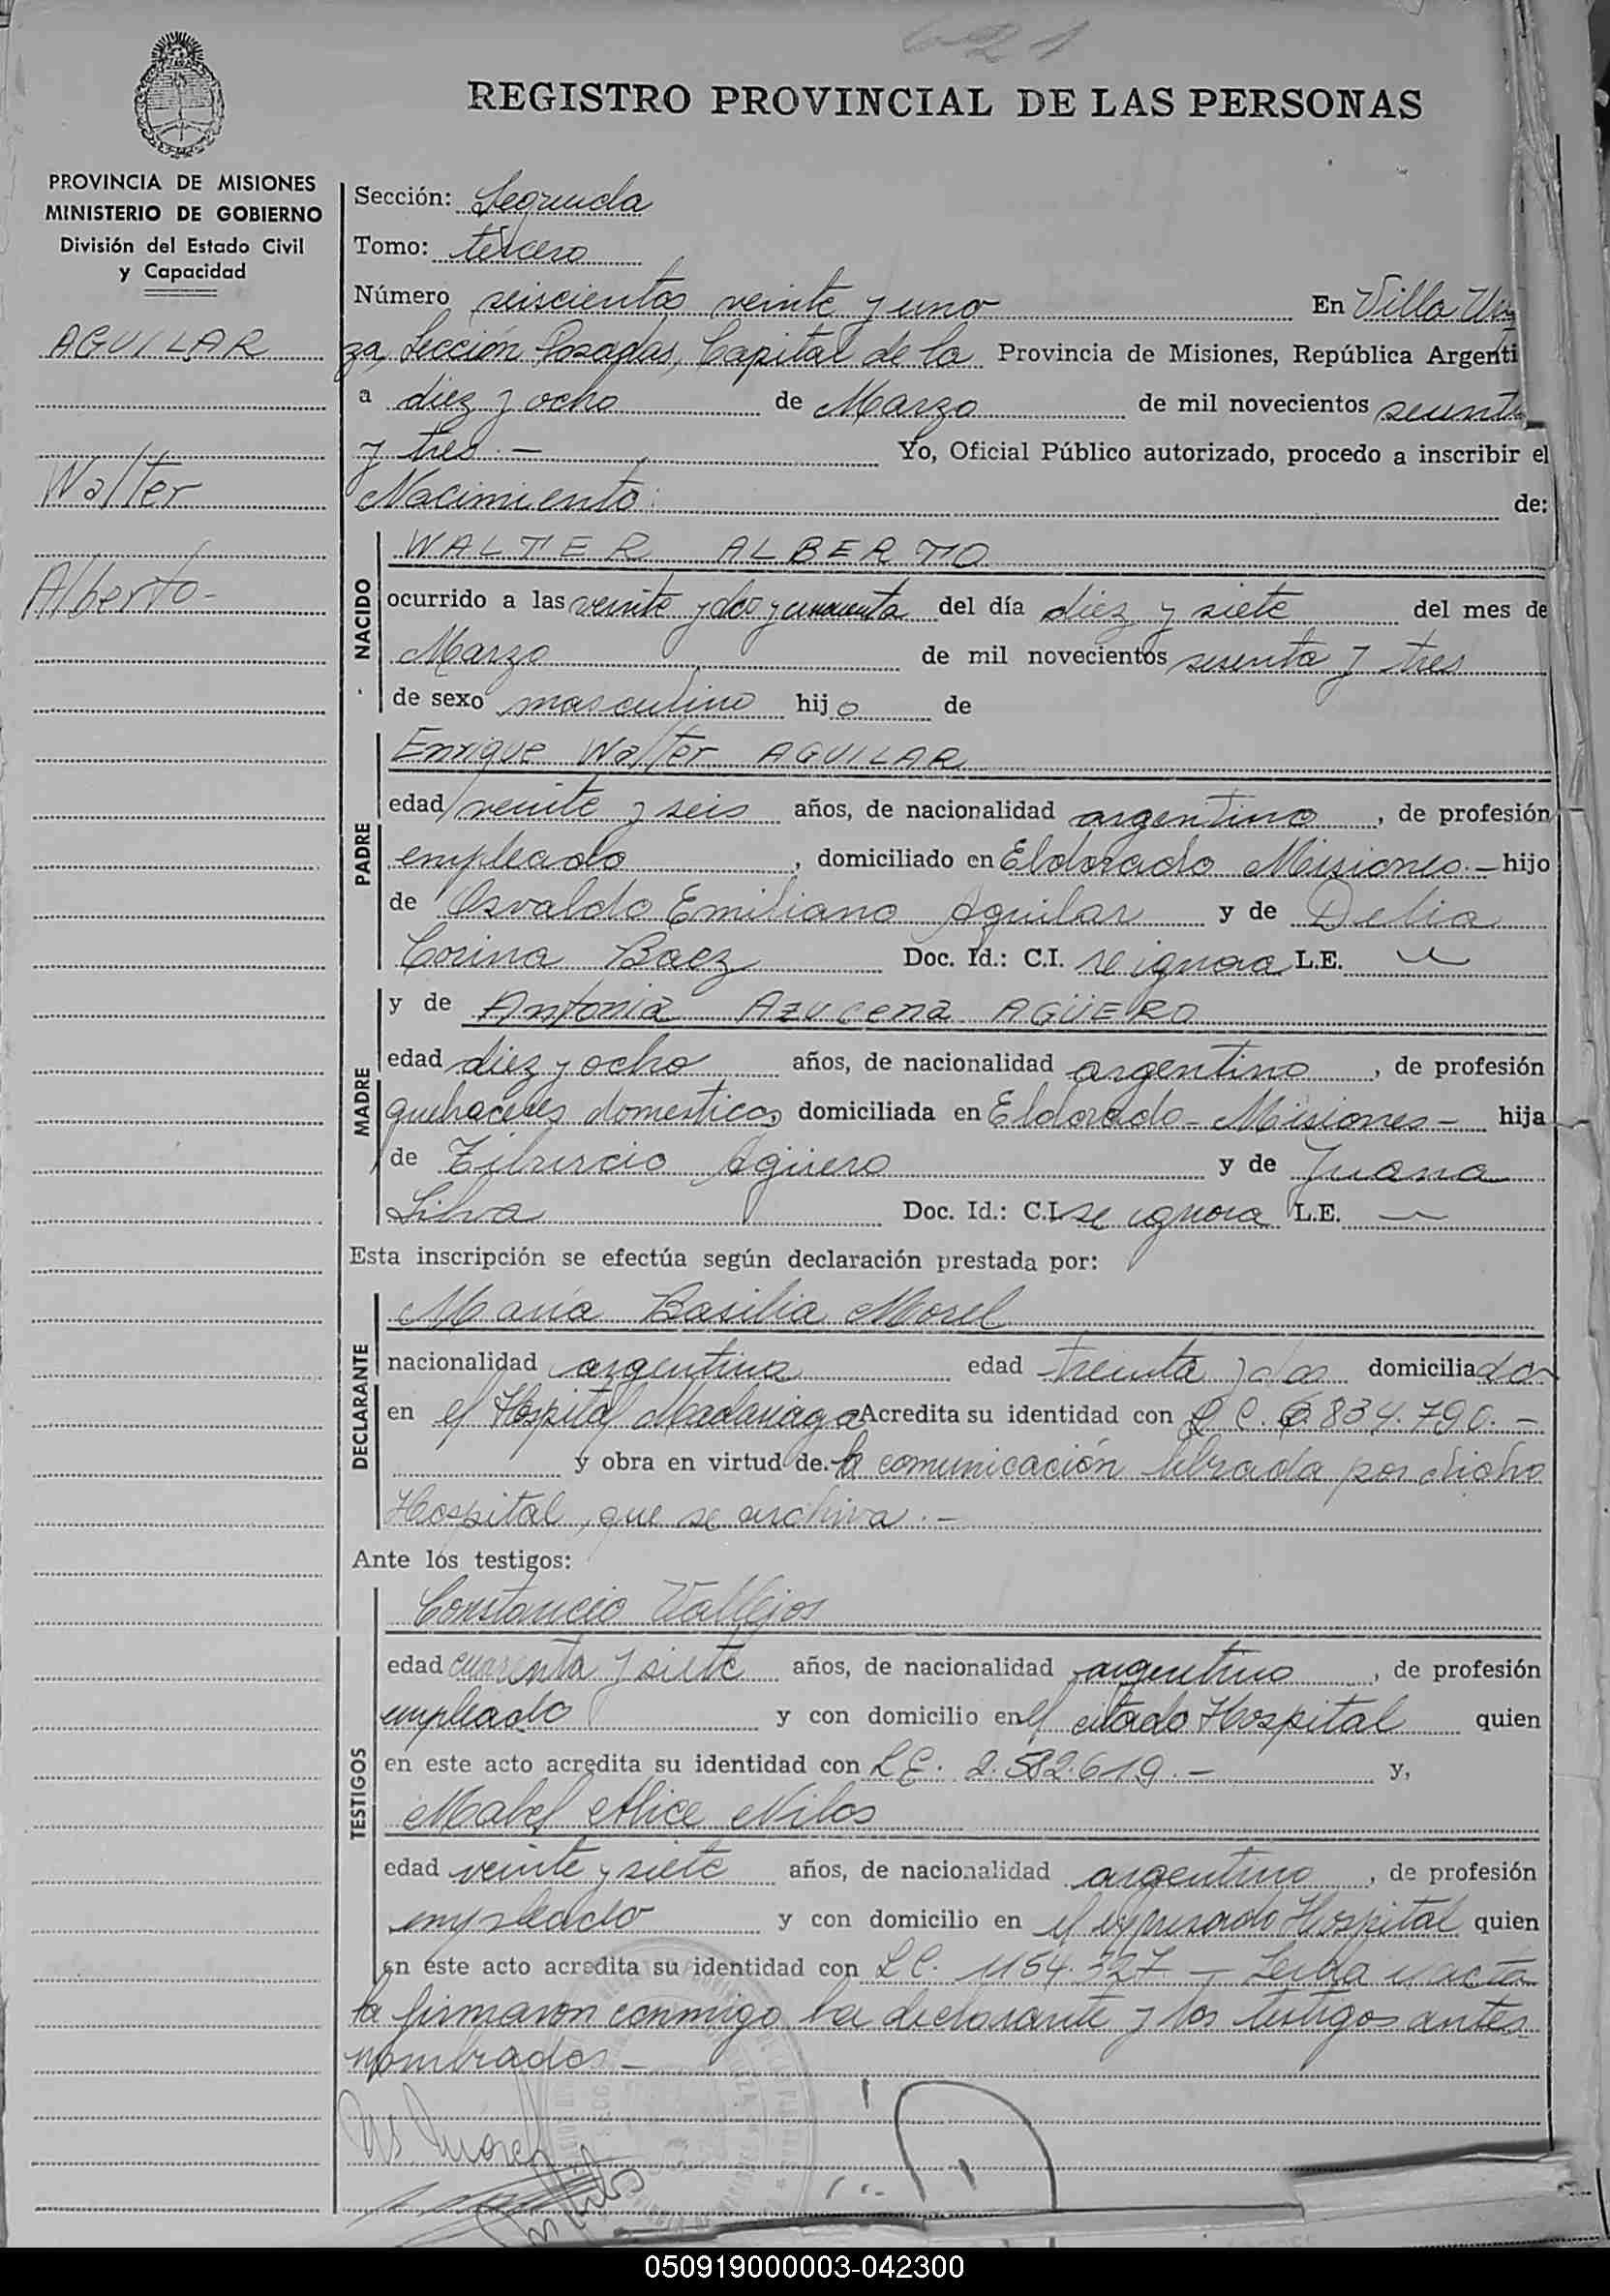 621
REGISTRO PROVINCIAL DE LAS PERSONAS
PROVINCIA DE MISIONES
MINISTERIO DE GOBIERNO
División del Estado Civil
y Capacidad
AGUILAR
Walter
Alberto-
Sección: Segunda
Tomo: tercero
Número seiscientos veinte y uno En Villa Ur
za, Sección Posadas, Capital de la Provincia de Misiones, República Argenti
a diez y ocho de Marzo de mil novecientos sesenta
y tres.- Yo, Oficial Público autorizado, procedo a inscribir el
Nacimiento de:
NACIDO
WALTER ALBERTO
ocurrido a las veinte y dos y cincuenta del día diez y siete del mes de
Marzo de mil novecientos sesenta y tres
de sexo masculino hijo de
PADRE
Enrique Walter AGUILAR
edad veinte y seis años, de nacionalidad argentino, de profesión
empleado, domiciliado en Eldorado Misiones.- hijo
de Osvaldo Emiliano Aguilar y de Delia
Corina Baez Doc. Id.: C.I. se ignora L.E.
MADRE
y de Antonia Azucena AGÜERO
edad diez y ocho años, de nacionalidad argentino, de profesión
quehaceres domesticos domiciliada en Eldorado-Misiones- hija
de Tiburcio Agüero y de Juana
Silva Doc. Id.: C.I. se ignora L.E.
Esta inscripción se efectúa según declaración prestada por:
DECLARANTE
María Basilia Morel
nacionalidad argentina edad treinta y dos domiciliada
en el Hospital Madariaga Acredita su identidad con L.C. 6.834.790.-
y obra en virtud de la comunicación librada por dicho
Hospital, que se archiva.-
Ante los testigos:
TESTIGOS
Constancio Vallejos
edad cuarenta y siete años, de nacionalidad argentino, de profesión
empleado y con domicilio en el citado Hospital quien
en este acto acredita su identidad con L.E. 2.582.619.- y,
Mabel Alice
edad veinte y siete años, de nacionalidad argentino, de profesión
empleado y con domicilio en el expresado Hospital quien
en este acto acredita su identidad con L.C. 1154.327.- Leida acta
la firmaron conmigo la declarante y los testigos antes
nombrados.-
Morel
050919000003-042300